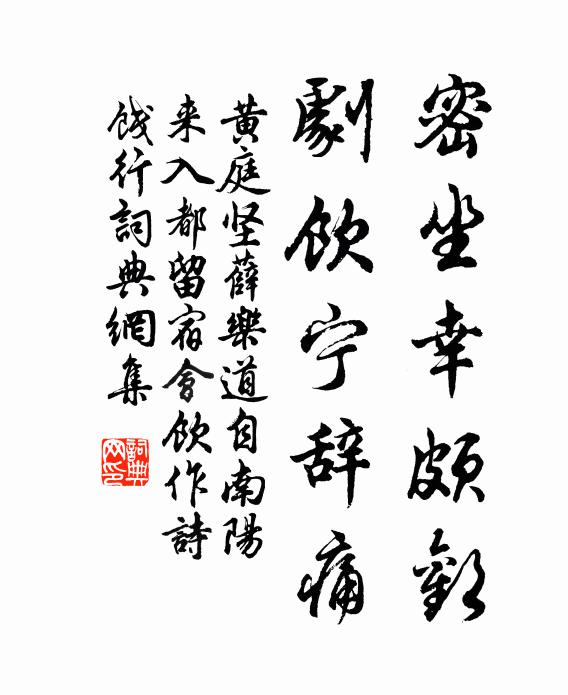 密坐幸頗歡
劇飲宁辞痛
黄庭坚薛樂道自南陽
来入都留宿會飲作詩
餞行詞典網集
詞典
网印